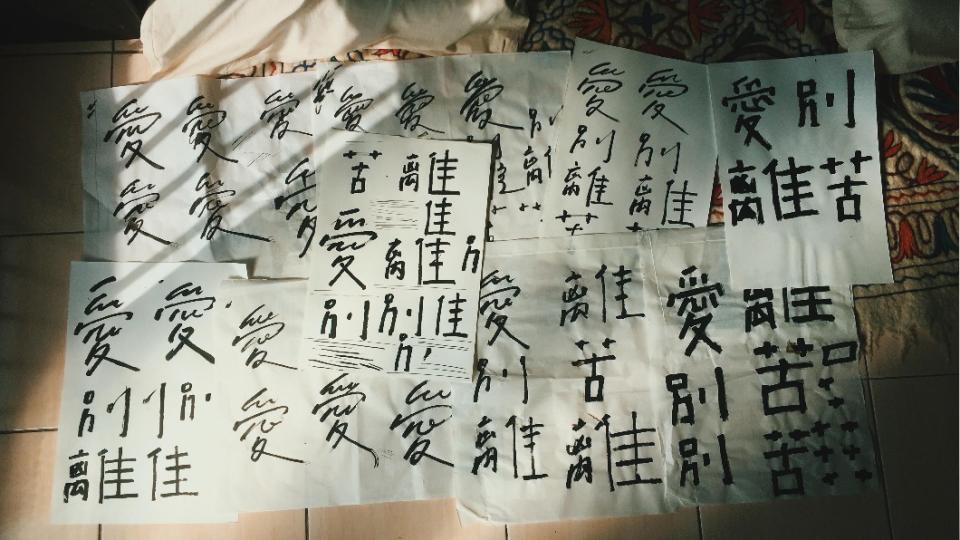 愛 愛 愛
愛 愛 愛
愛 愛 愛
愛 愛
別 別
離 離
愛 別
離 苦
苦 離
隹
愛 離
別 別 隹
愛 愛
別
離 隹
愛
愛 愛 愛
愛 離
別 苦
離 離
愛
別
別
苦
苦